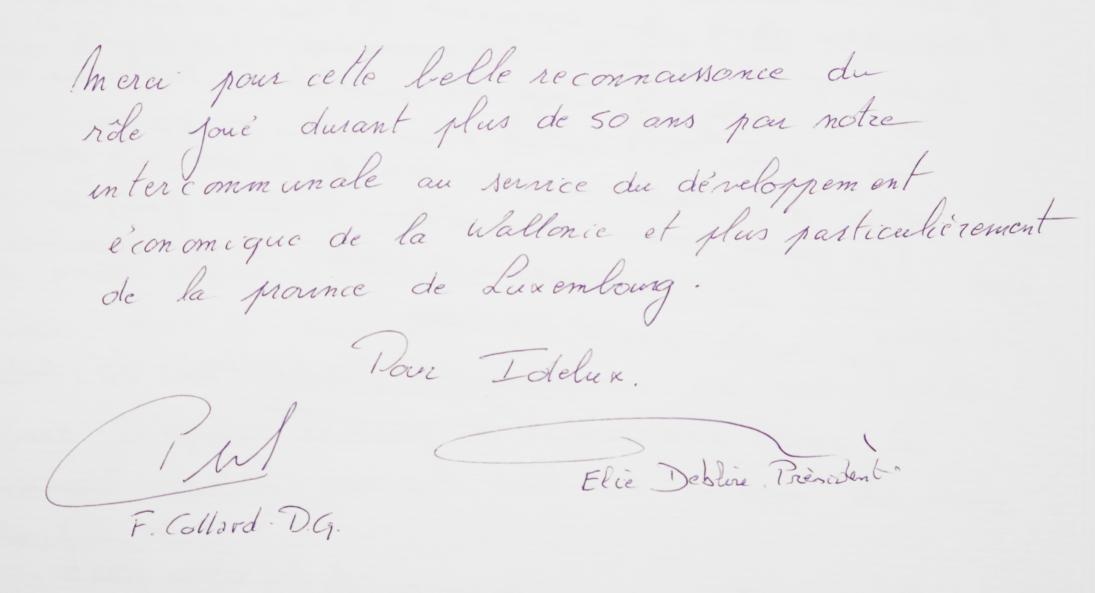 Merci pour cette belle reconnaissance du
rôle joué durant plus de 50 ans par notre
intercommunale au service du développement
économique de la Wallonie et plus particulièrement
de la province de Luxembourg.
Pour Idelux.
F. Collard. DG.
Elie Deblire. Président.